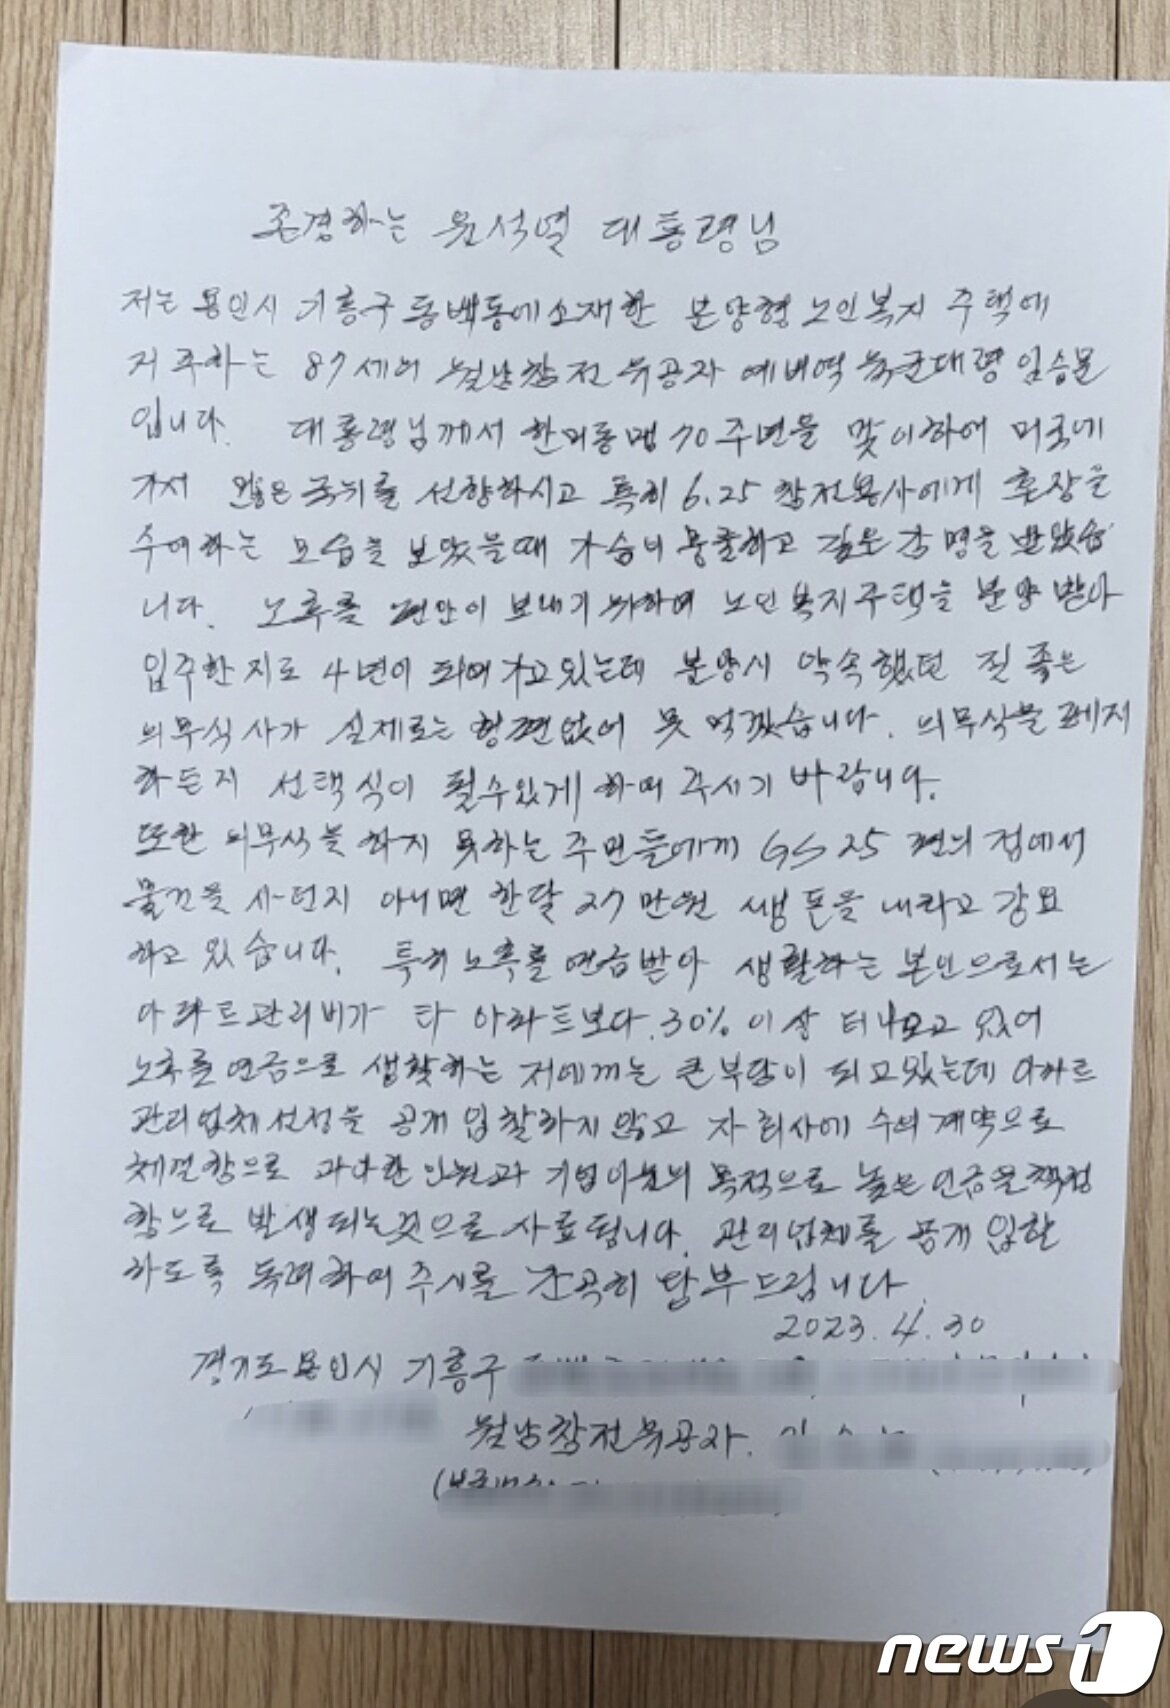 존경하는 윤석열 대통령님
저는 용인시 기흥구 동백동에 소재한 분양형 노인복지 주택에
거주하는 87세의 월남참전 유공자 예비역 육군대령 임승문
입니다. 대통령님께서 한미동맹 70주년을 맞이하여 미국에
가서 많은 국위를 선양하시고 특히 6.25 참전용사에게 훈장을
수여하는 모습을 보았을때 가슴이 뭉클하고 깊은 감명을 받았습
니다. 노후를 편안이 보내기 위하여 노인복지주택을 분양 받아
입주한지도 4년이 되여가고 있는데 분양시 약속했던 질 좋은
의무식사가 실제로는 형편없어 못 먹겠습니다. 의무식을 폐지
하든지 선택식이 될수있게 하여 주시기 바랍니다.
또한 의무식을 하지 못하는 주민들에게 GS25 편의점에서
물건을 사던지 아니면 한달 27만원 쌩돈을 내라고 강요
하고 있습니다. 특히 노후를 연금받아 생활하는 본인으로서는
아파트관리비가 타 아파트보다 30% 이상 더 나오고 있어
노후를 연금으로 생활하는 저에게는 큰 부담이 되고있는데 아파트
관리업체선정을 공개 입찰하지 않고 자회사에 수의계약으로
체결함으로 과다한 인원과 기업이윤의 목적으로 높은 인금을 책정
함으로 발생되는것으로 사료됩니다. 관리업체를 공개 입찰
하도록 독려하여 주시를 간곡히 당부드립니다.
2023.4.30
경기도 용인시 기흥구
월남참전유공자.
news1